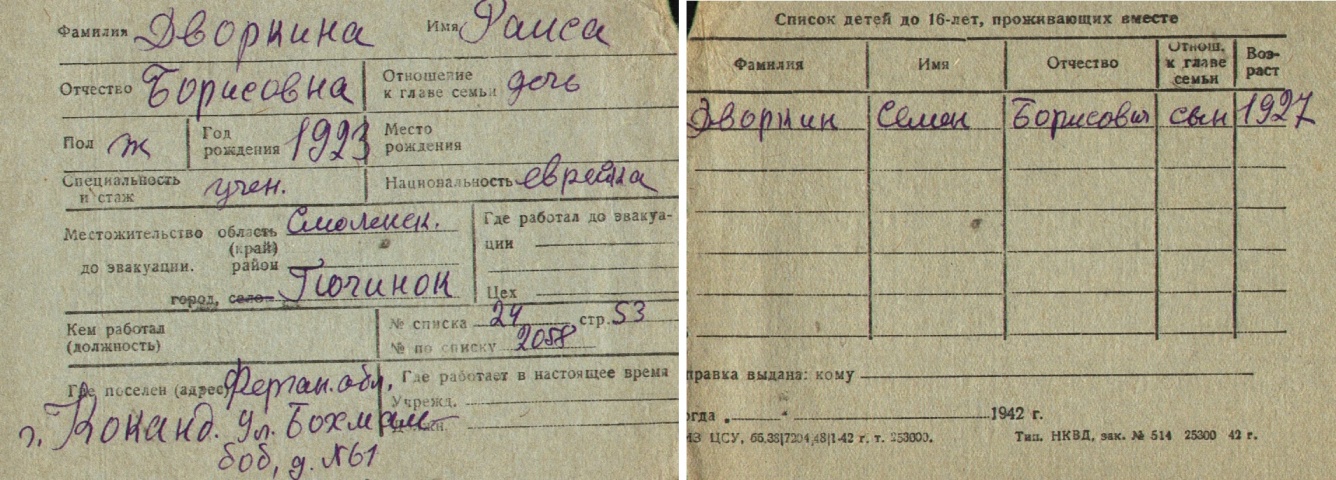 Фамилия Дворкина Имя Раиса
Отчество Борисовна Отношение к главе семьи дочь
Пол ж Год рождения 1923 Место рождения
Специальность и стаж учен. Национальность еврейка
Местожительство область Смоленск. Где работал до эвакуа-
(край) ции
до эвакуации. район
город, село Починок Цех
Кем работал № списка 24 стр. 53
(должность) № по списку 2058
Где поселен (адрес) Ферган. обл. Где работает в настоящее время
Учрежд.
г. Коканд. ул. Бохмал
боб, д. №61
Список детей до 16-лет, проживающих вместе
Фамилия Имя Отчество Отнош. к главе семьи Воз-раст
Дворкин Семен Борисович сын 1927
правка выдана: кому
огда 1942 г.
ИЗ ЦСУ, 1-42 г. т. 253000. Тип. НКВД, зак. № 514 25300 42 г.